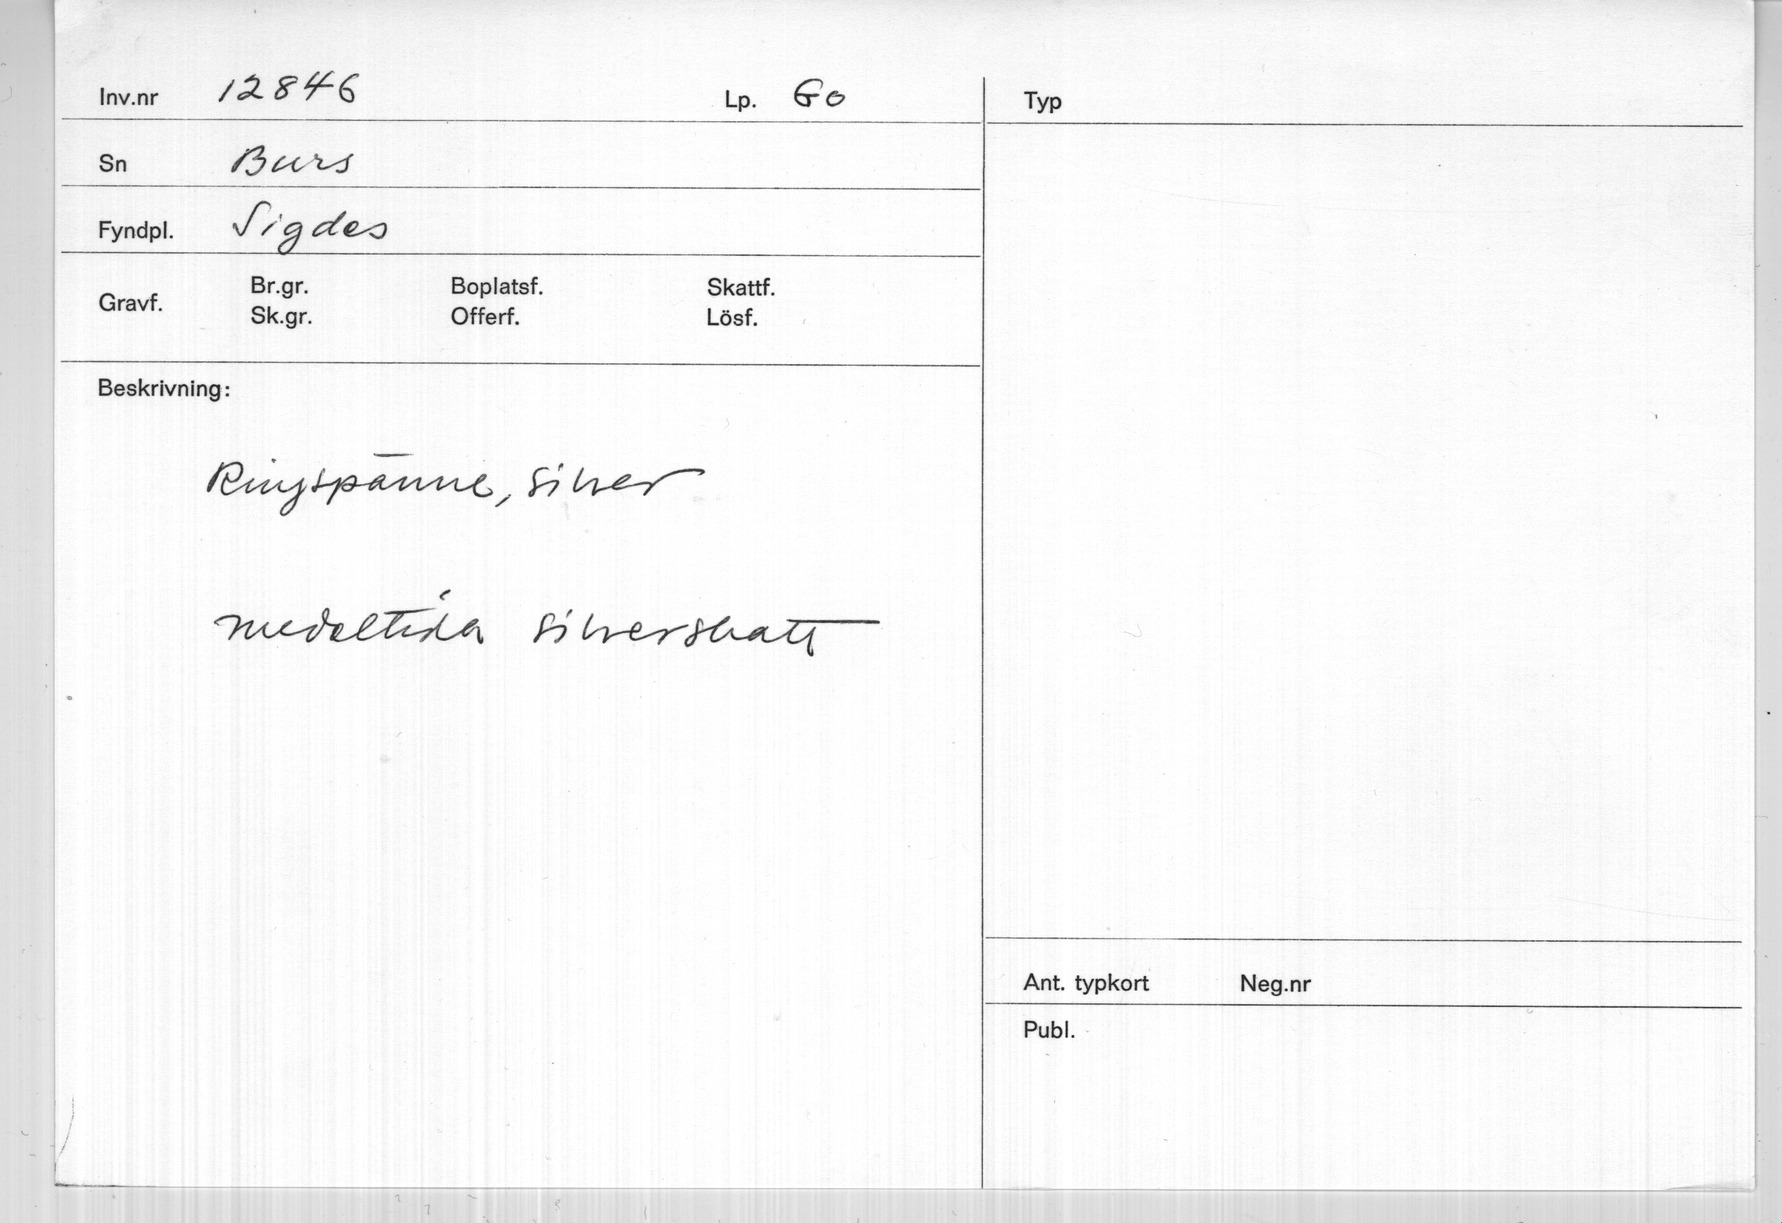 Inv.nr 12846 Lp. Go
Sn Burs
Fyndpl. Sigdes
Gravf. Br.gr. Boplatsf. Skattf.
Sk.gr. Offerf. Lösf.
Beskrivning:
Ringspänne, silver
medeltida silverskatt
Typ
Ant. typkort Neg.nr
Publ.